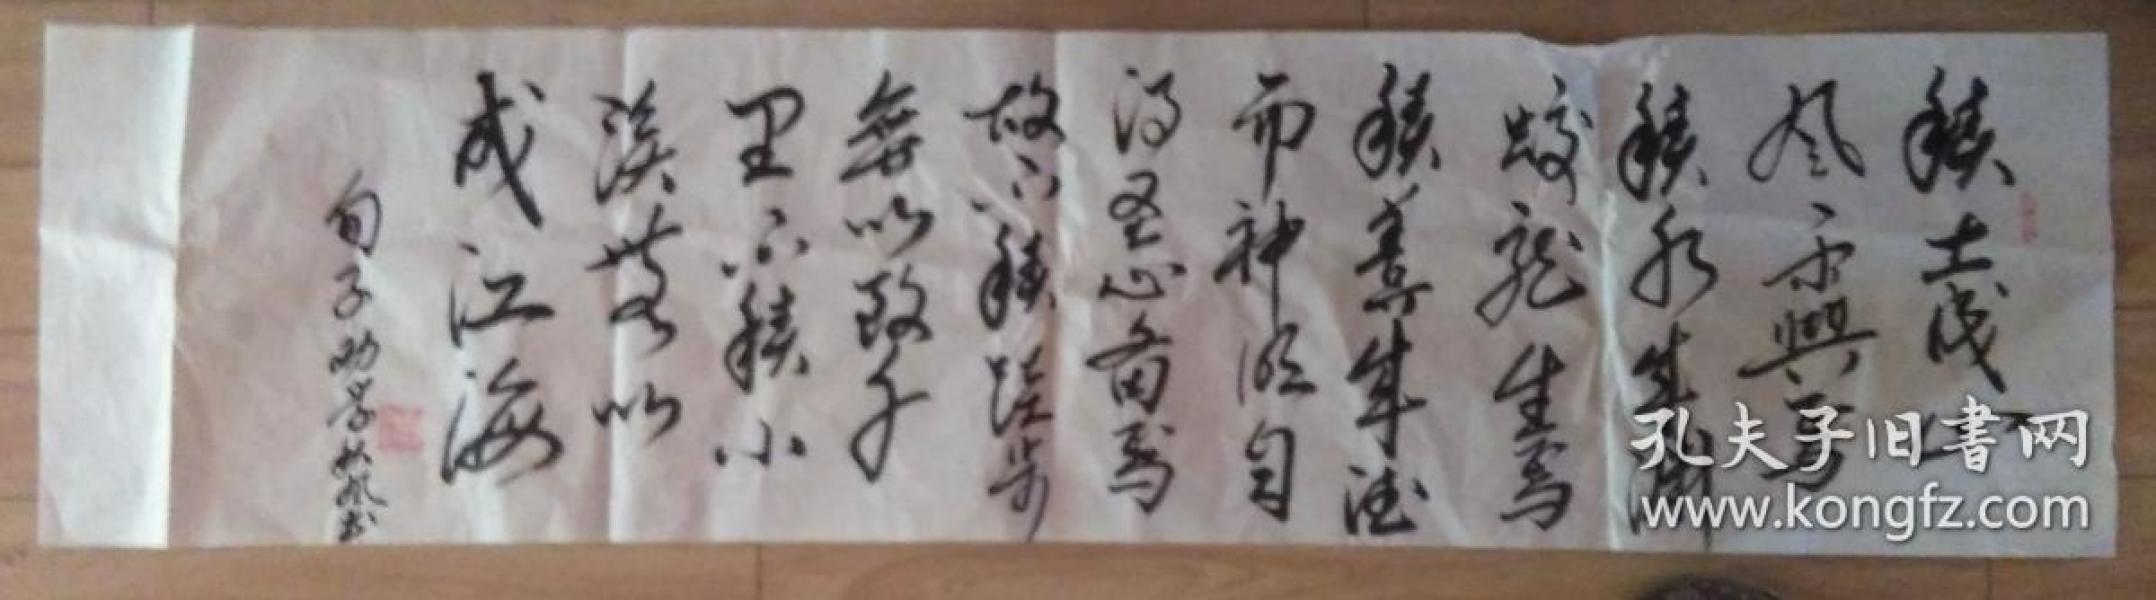 積土成山
风雨興焉
積水生淵
蛟龙生焉
積善成德
而神明自
得圣心备焉
故不積跬步
無以致千
里不積小
溪無以
成江海
荀子劝学
孔夫子旧書网
www.kongfz.com